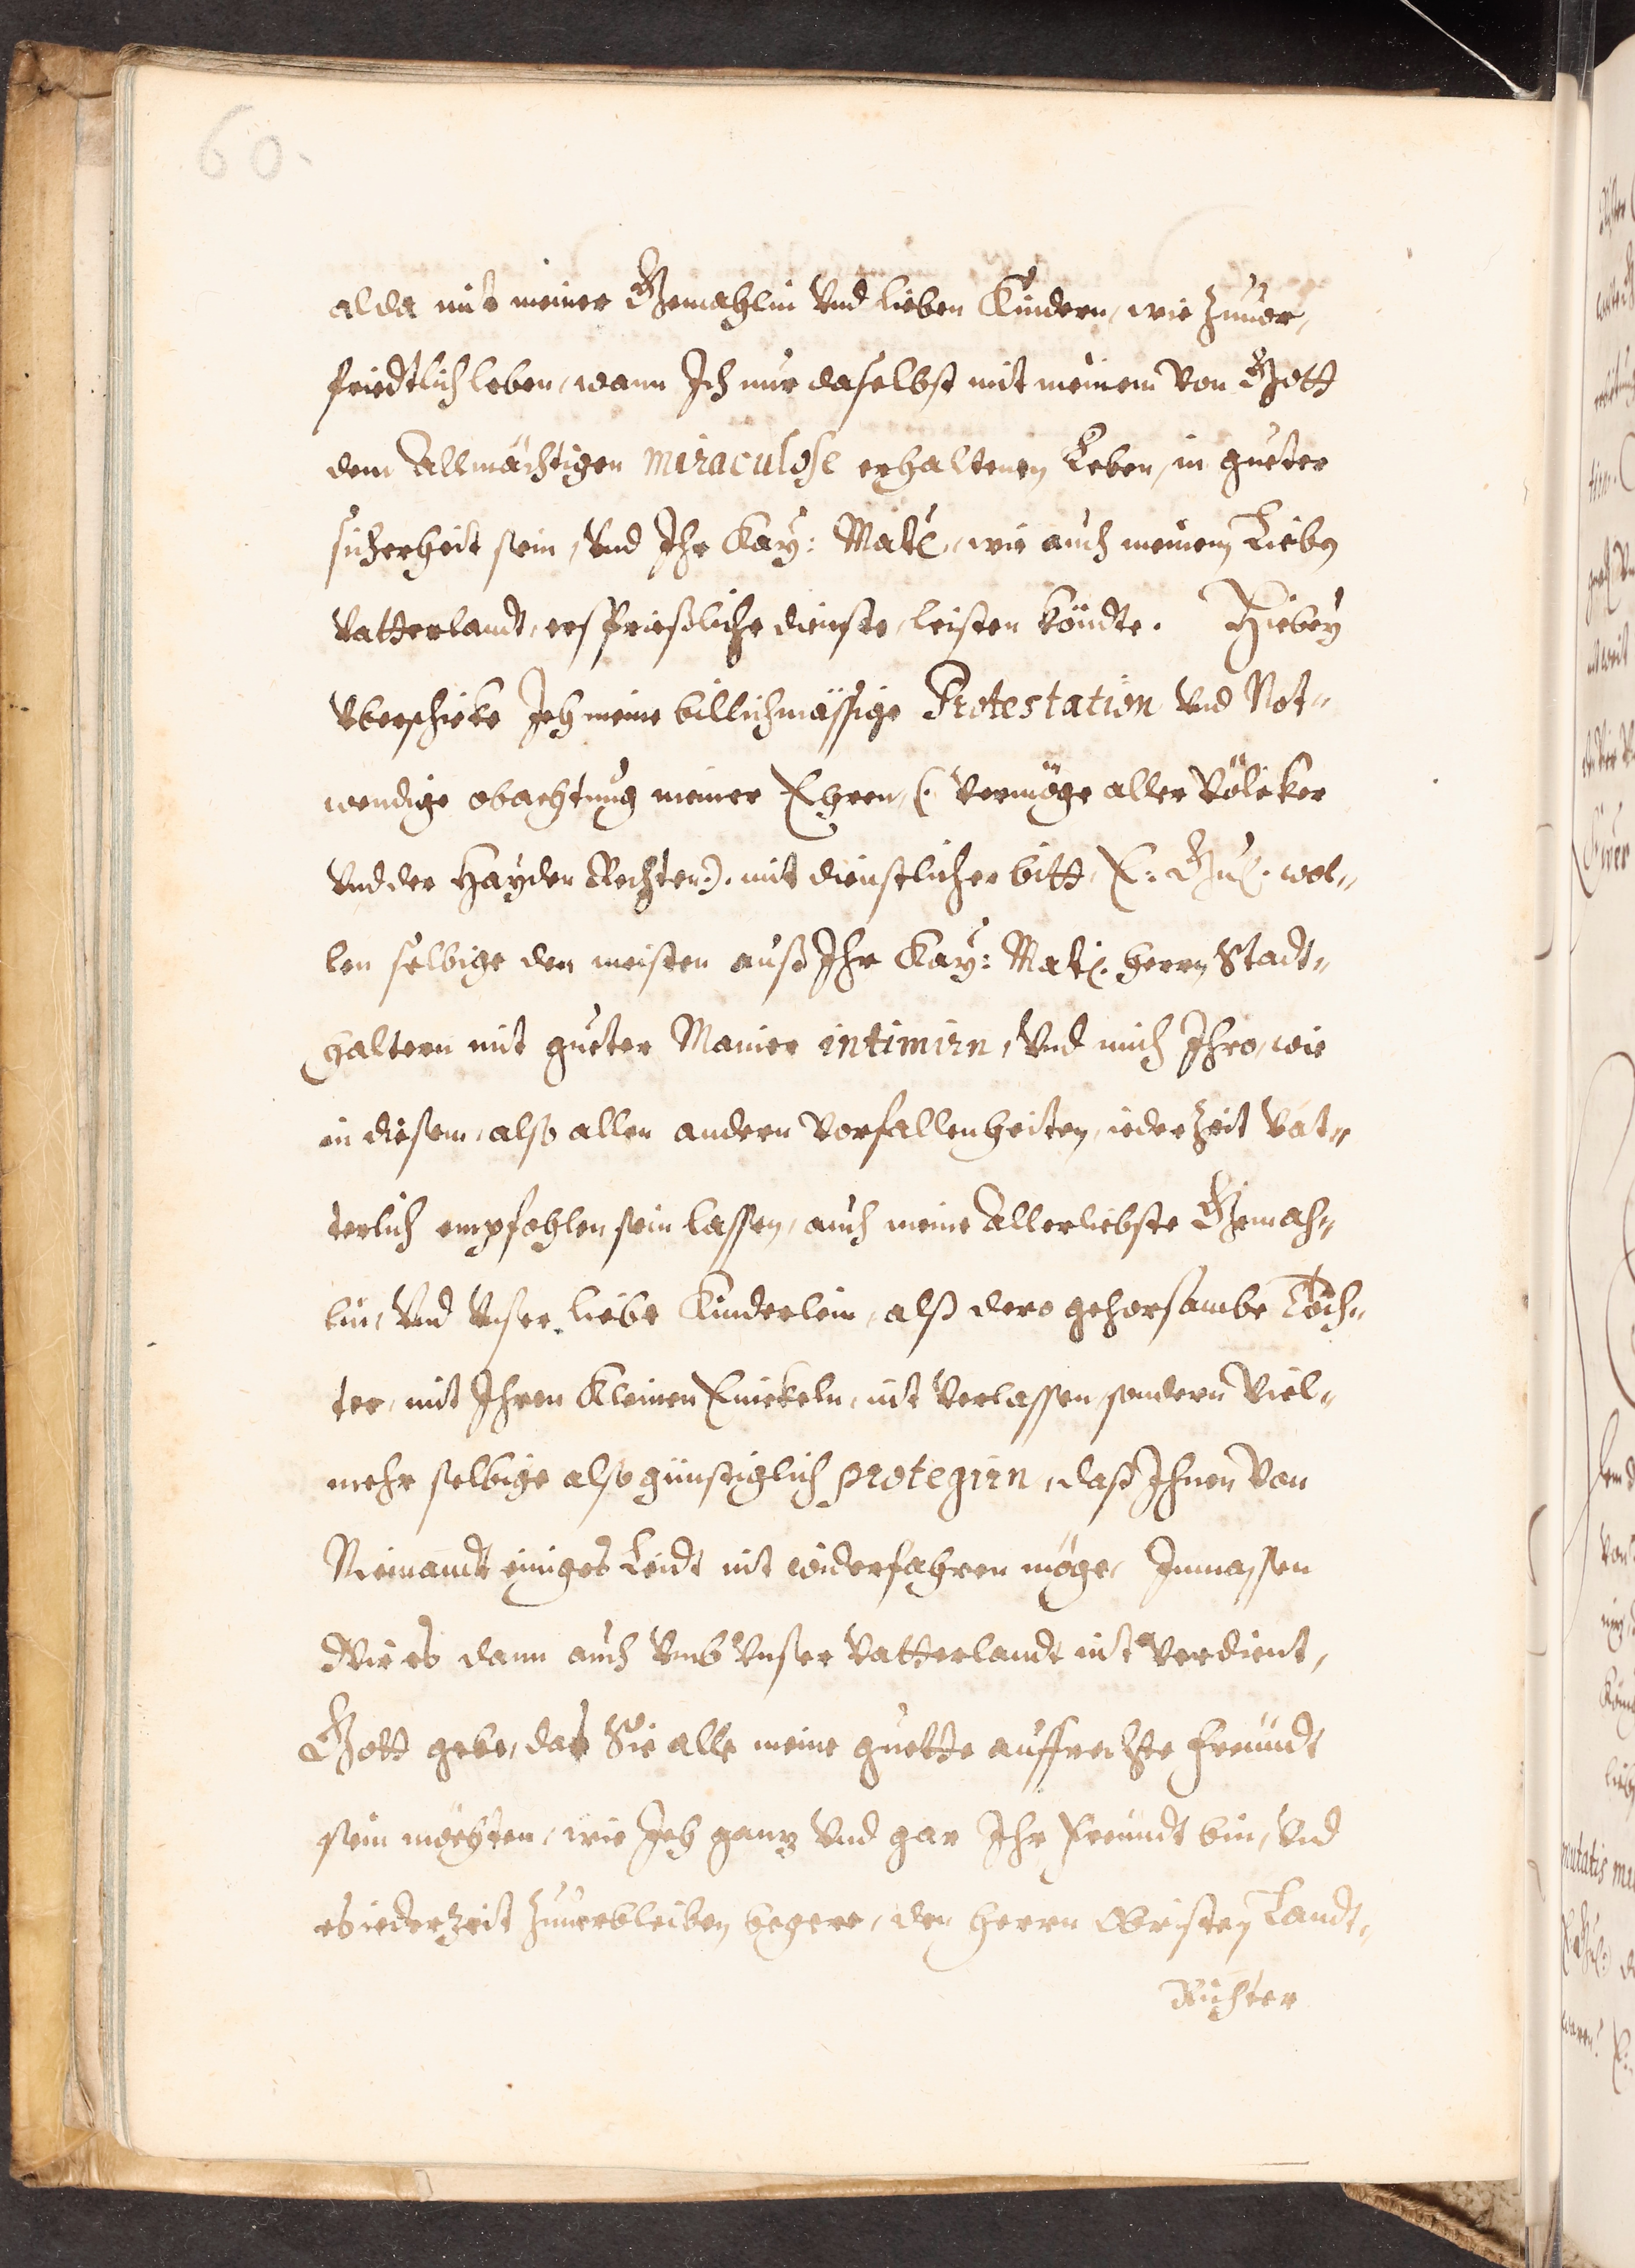 60.
alda mit meiner Gemahlin vnd lieben Kindern, wie zuuor,
friedtlich leben, wann Ich nur daselbst mit meinem von Gott
dem Allmächtigen miraculose erhaltenen Leben, in gueter
sicherheit sein, vnd Ihr Kay: Matt. wie auch meinem Lieben
Vatterlandt, ersprießliche dienste, leisten köndte. Hiebey
vberschicke Ich meine billichmässige Protestation vnd Not-
wendige obachtung meiner Ehren, (: vermöge aller Völcker
vnd der Hayden Rechten:). mit dienstlicher bitt, E: Gn. wol-
len selbige den meisten auß Ihr Kay: Matt. herrn Stadt-
haltern mit gueter Manier intimirn, vnd mich Ihro, wie
in diesem, also allen andern vorfallenheiten, iederzeit vat-
terlich empfohlen sein lassen, auch meine Allerliebste Gemah-
lin, vnd vnser liebe Kinderlein, alß dero gehorsambe Toch-
ter, mit Ihren Kleinen Enickeln, nit verlassen, sondern viel-
mehr selbige also günstiglich protegirn, daß Ihnen von
Niemandt einiges Leidt nit widerfahren möge, Inmassen
Wir es dann auch vmb vnser Vatterlandt nit verdient,
Gott gebe, das Sie alle meine guette auffrechte Freundt
sein möchten, wie Ich ganz vnd gar Ihr Freundt bin, vnd
es iederzeit zuuerbleiben begere, den herrn Obristen Landt-
Richter